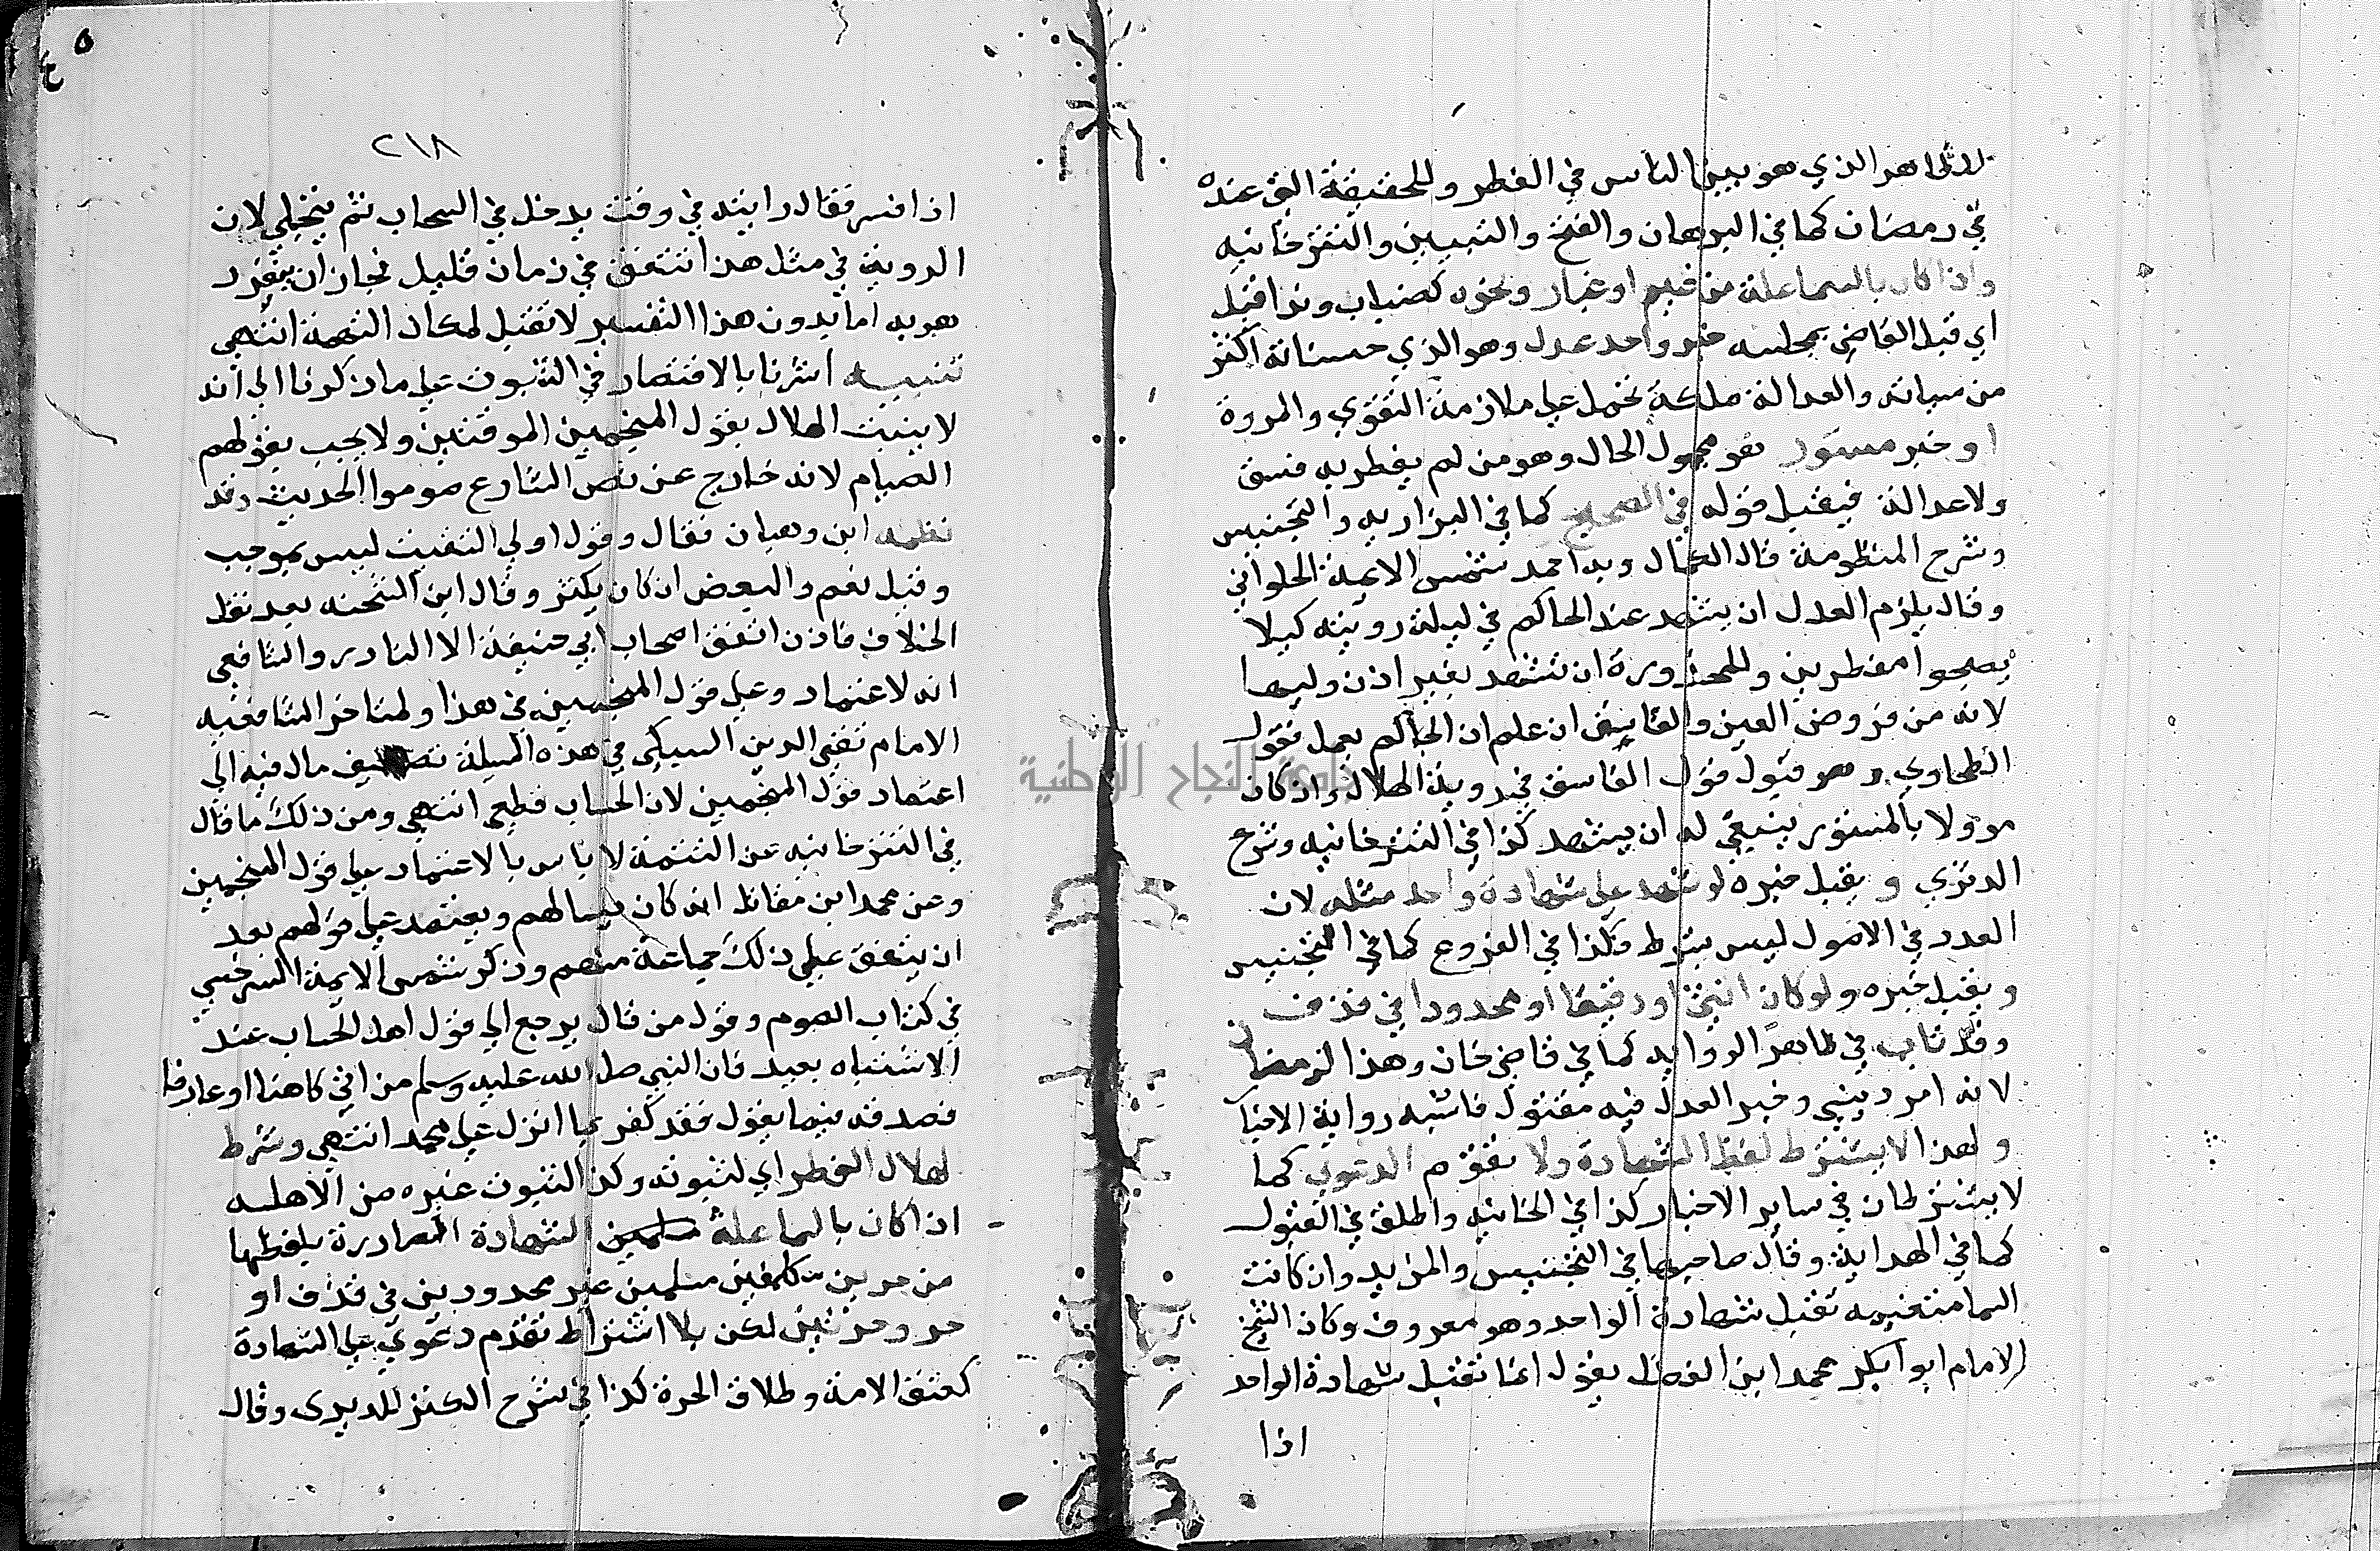 للظاهر الذي هو بين الناس في الفطر وللحقيقة التي عنده
في رمضان كما في البرهان والفتح والتبيين والتترخانيه
واذا كان بالسما علة من غيم او غبار ونحوه كضباب وندا قبل
اي قبل القاضي بمجلسه خبر واحد عدل وهو الذي حسناته اكثر
من سياته والعدالة ملكة تحمل على ملازمة التقوي والمروة
او خبر مستور هو مجهول الحال وهو من لم يظهر به فسق
ولا عدالة فيقبل قوله في الصحيح كما في البزاريه والتجنيس
وشرح المنظومة قال الكمال وبه اخذ شمس الايمة الحلواني
وقال يلزم العدل ان يشهد عند الحاكم في ليلة رويته كيلا
يصبحوا مفطرين وللمخدورة ان تشهد بغير اذن وليها
لانه من فروض العين والفاسق ان علم ان الحاكم يعمل بقول
الطحاوي وهو قبول قول الفاسق في روية الهلال وان كان
موولا بالمستور ينبغي له ان يشهد كذا في التترخانيه وشرح
الديري ويقبل خبره لو شهد على شهادة واحد مثله لان
العدد في الاصول ليس بشرط فكذا في الفروع كما في التجنيس
ويقبل خبره ولو كان انثي او رقيقا او محدودا في قذف
وقد تاب في ظاهر الروايه كما في قاضي خان وهذا لرمضان
لانه امر ديني وخبر العدل فيه مقبول فاشبه رواية الاخبا
ولهذا لا يشترط لفظ الشهادة ولا تقدم الدعوي كما
لا يشترطان في ساير الاخبار كذا في الخانيه واطلق في القبول
كما في الهداية وقال صاحبها في التجنيس والمزيد وان كانت
السما متغيمه تقبل شهادة الواحد وهو معروف وكان الشيخ
الامام ابو بكر محمد ابن الفضل يقول انما تقبل شهادة الواحد
اذا
٢١٨
اذا فسر فقال رايته في وقت يدخل في السحاب ثم ينجلي لان
الروية في مثل هذا تتفق في زمان قليل فجاز ان ينفرد
هو به اما بدون هذا التفسير لا تقبل لمكان التهمة انتهي
تنبيه اشرنا بالاقتصار في الثبوت على ما ذكرنا الي انه
لا يثبت الهلال بقول المنجمين الموقتين ولا يجب بقولهم
الصيام لانه خارج عن نص الشارع صوموا الحديث وقد
نظمه ابن وهبان فقال وقول اولي التقيت ليس بموجب
وقيل نعم والبعض ان كان يكثر وقال ابن الشحنه بعد نقل
الخلاف فاذن اتفق اصحاب ابي حنيفة الا النادر والشافعي
انه لا اعتماد وعلي قول المنجمين في هذا ولمتاخر الشافعيه
الامام تقي الدين السبكي في هذه المسلة تصنيف مال فيه الي
اعتماد قول المنجمين لان الحساب قطعي انتهي ومن ذلك ما قال
في التترخانيه عن التتمة لا باس بالاعتماد علي قول المنجمين
وعن محمد ابن مقاتل انه كان يسالهم ويعتمد علي قولهم بعد
ان يتفق علي ذلك جماعة منهم وذكر شمس الايمة السرخسي
في كتاب الصوم وقول من قال يرجع الي قول اهل الحساب عند
الاشتباه بعيد فان النبي صلى الله عليه وسلم من اتي كاهنا او عارفا
فصدقه فيما يقول فقد كفر بما انزل علي محمد انتهي وشرط
لهلال الفطر اي لثبوته وكذا لثبوت غيره من الاهلسه
اذا كان بالسما علة الشهادة الصادرة بلفظها
من حرين مكلفين مسلمين غير محدودين في قذف او
حر وحرتين لكن بلا اشتراط تقدم دعوي علي الشهادة
كعتق الامة وطلاق الحرة كذا في شرح الكنز للديرى وقال
جامعة النجاح الوطنية